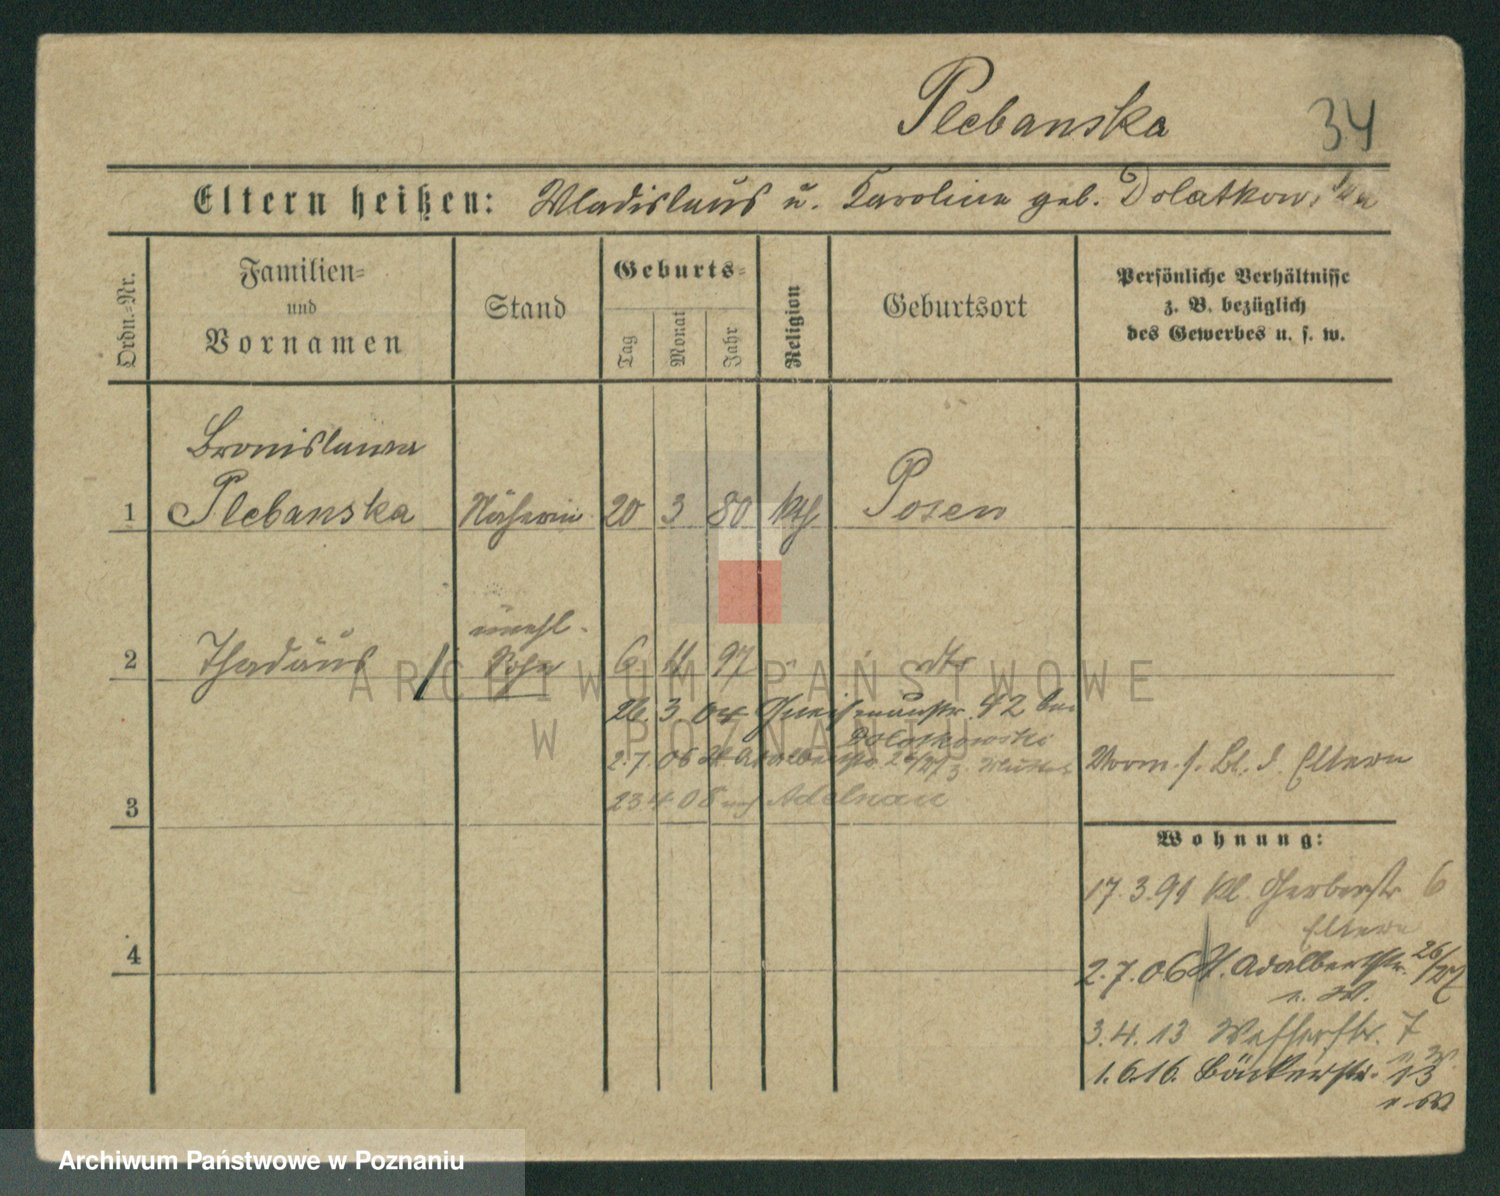 Plebanska
34
Eltern heißen: Wladislaus u. Karoline geb. Dolatkowska
Ordn.-Nr.
Familien-
und
Vornamen
Stand
Geburts-
Tag
Monat
Jahr
Religion
Geburtsort
Persönliche Verhältnisse
z. B. bezüglich
des Gewerbes u. s. w.
Bronislawa
1 Plebanska Näherin 20 3 80 kth Posen
unehl.
2 Thadäus Sohn 6 11 97 " dto
ARCHIWUM PAŃSTWOWE
W POZNANIU
26. 3. 04 Gneisenaustr. 42 bei
Dolatkowski
2. 7. 06 St. Adalbertstr. 26/27 z. Mutter
23 4 08 nach Adelnau
Vorm. s. Bl. d. Eltern
3
Wohnung:
17. 3. 99 Kl. Gerberstr. 6
Eltern
2. 7. 06 St. Adalbertstr. 26/27
3. 4. 13 Wasserstr. 7
1. 6. 16. Bäckerstr. 13
4
Archiwum Państwowe w Poznaniu